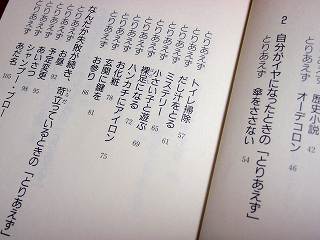 とりあえず 歴史小説 42
とりあえず オーデコロン 46
2 自分がイヤになったときの「とりあえず」
とりあえず 傘をささない 54
とりあえず トイレ掃除 57
とりあえず だし汁をとる 61
とりあえず ミステリー
とりあえず 小さい子と遊ぶ 65
とりあえず 裸足になる 69
とりあえず ハンカチにアイロン 72
とりあえず お化粧 75
とりあえず 玄関に鍵を 78
とりあえず お参り 81
なんだか失敗が続き、苛立っているときの「とりあえず」
とりあえず お昼 88
とりあえず 予定変更
とりあえず あいさつ 95
とりあえず シャンプー・ブロー 98
とりあえず あだ名 105